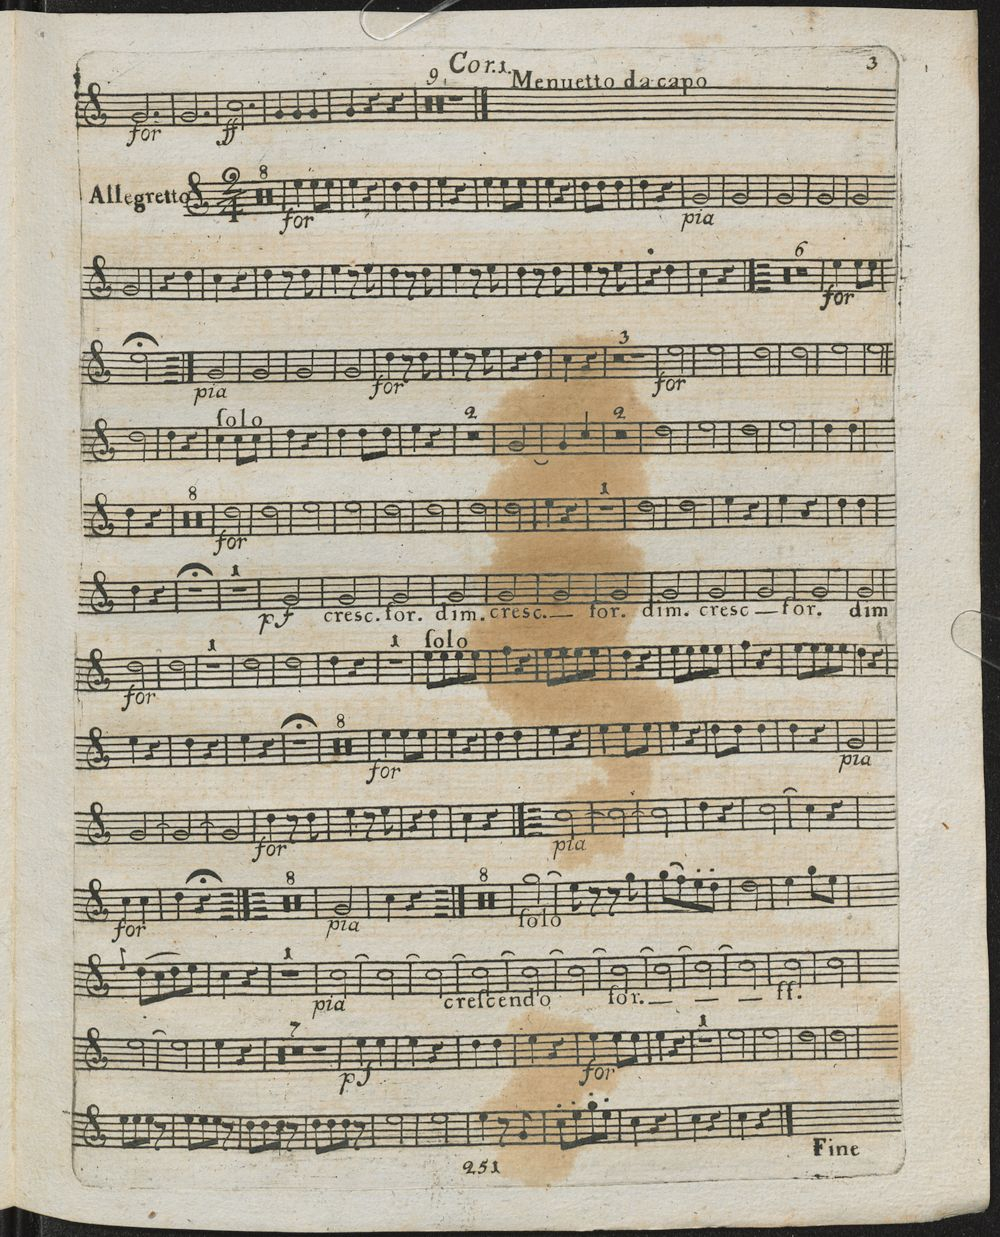 Cor.1.
3
9
Menuetto da capo
for ff
Allegretto 2/4 8
for pia
6
for
3
pia for for
solo 2 2
8 1
for
1
pf cresc. for. dim. cresc.— for. dim. cresc — for. dim
1 1 solo
for
8
for pia
for pia
8 8
for pia solo
1
pia crescendo for. — — — ff.
7 1
pf for
Fine
251